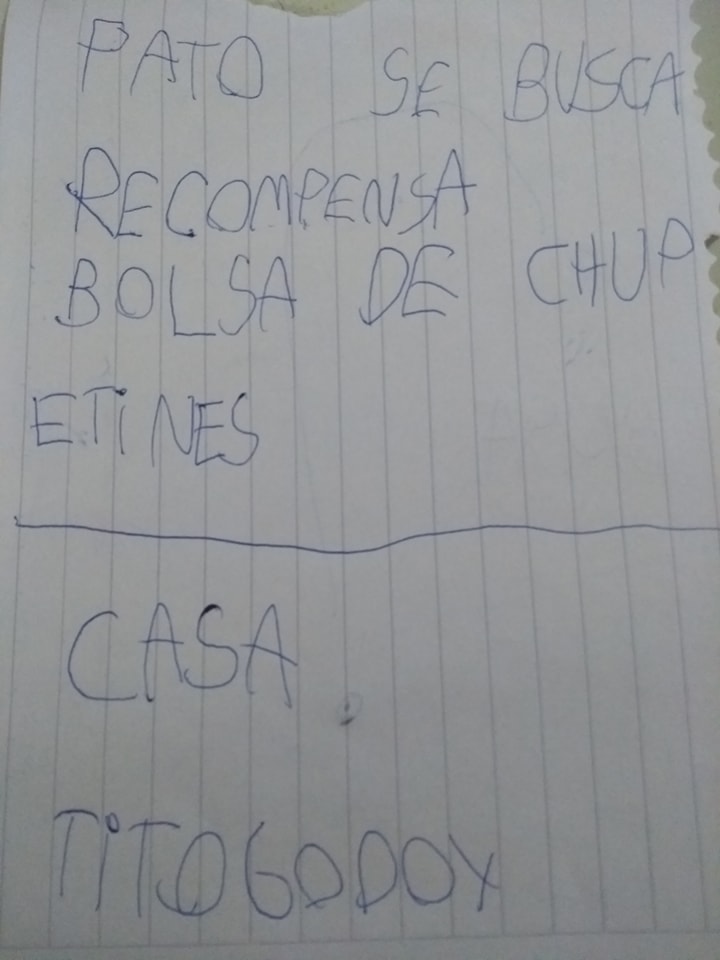 PATO SE BUSCA
RECOMPENSA
BOLSA DE CHUP
ETiNES
CASA
TiTO GODOY